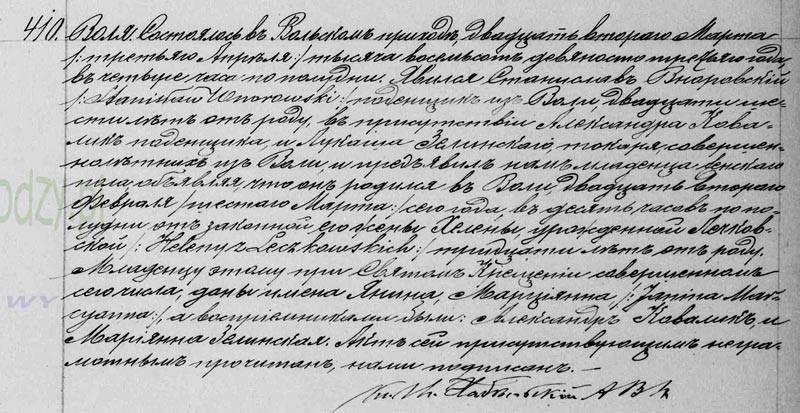 410. Воля. Состоялось въ Вольскомъ приходѣ, двадцать втораго Марта
/: третьяго Апрѣля :/ тысяча восемьсотъ девяносто третьяго года
въ четыре часа пополудни. Явился Станиславъ Вноровскій
/: Stanisław Wnorowski :/ поденщикъ изъ Воли, двадцати ше-
сти лѣтъ отъ роду, въ присутствіи Александра Кова-
ликъ поденщика, и Лукаша Зелинскаго, токаря, совершен-
нолѣтнихъ изъ Воли, и предъявилъ намъ младенца женскаго
пола, объявляя, что онъ родился въ Воли, двадцать втораго
Февраля /: шестаго Марта :/ сего года, въ десять часовъ попо-
лудни отъ законной его жены Хелены урожденной Лечков-
ской /: Heleny z Leczkowskich :/ тридцати лѣтъ отъ роду.
Младенцу этому при Святомъ Крещеніи совершенномъ
сего числа, даны имена Янина, Марціянна /: Janina Mar-
cyanna :/ а воспріемниками были: Александръ Коваликъ, и
Маріянна Зелинская. Актъ сей присутствующимъ негра-
мотнымъ прочитанъ, нами подписанъ. —